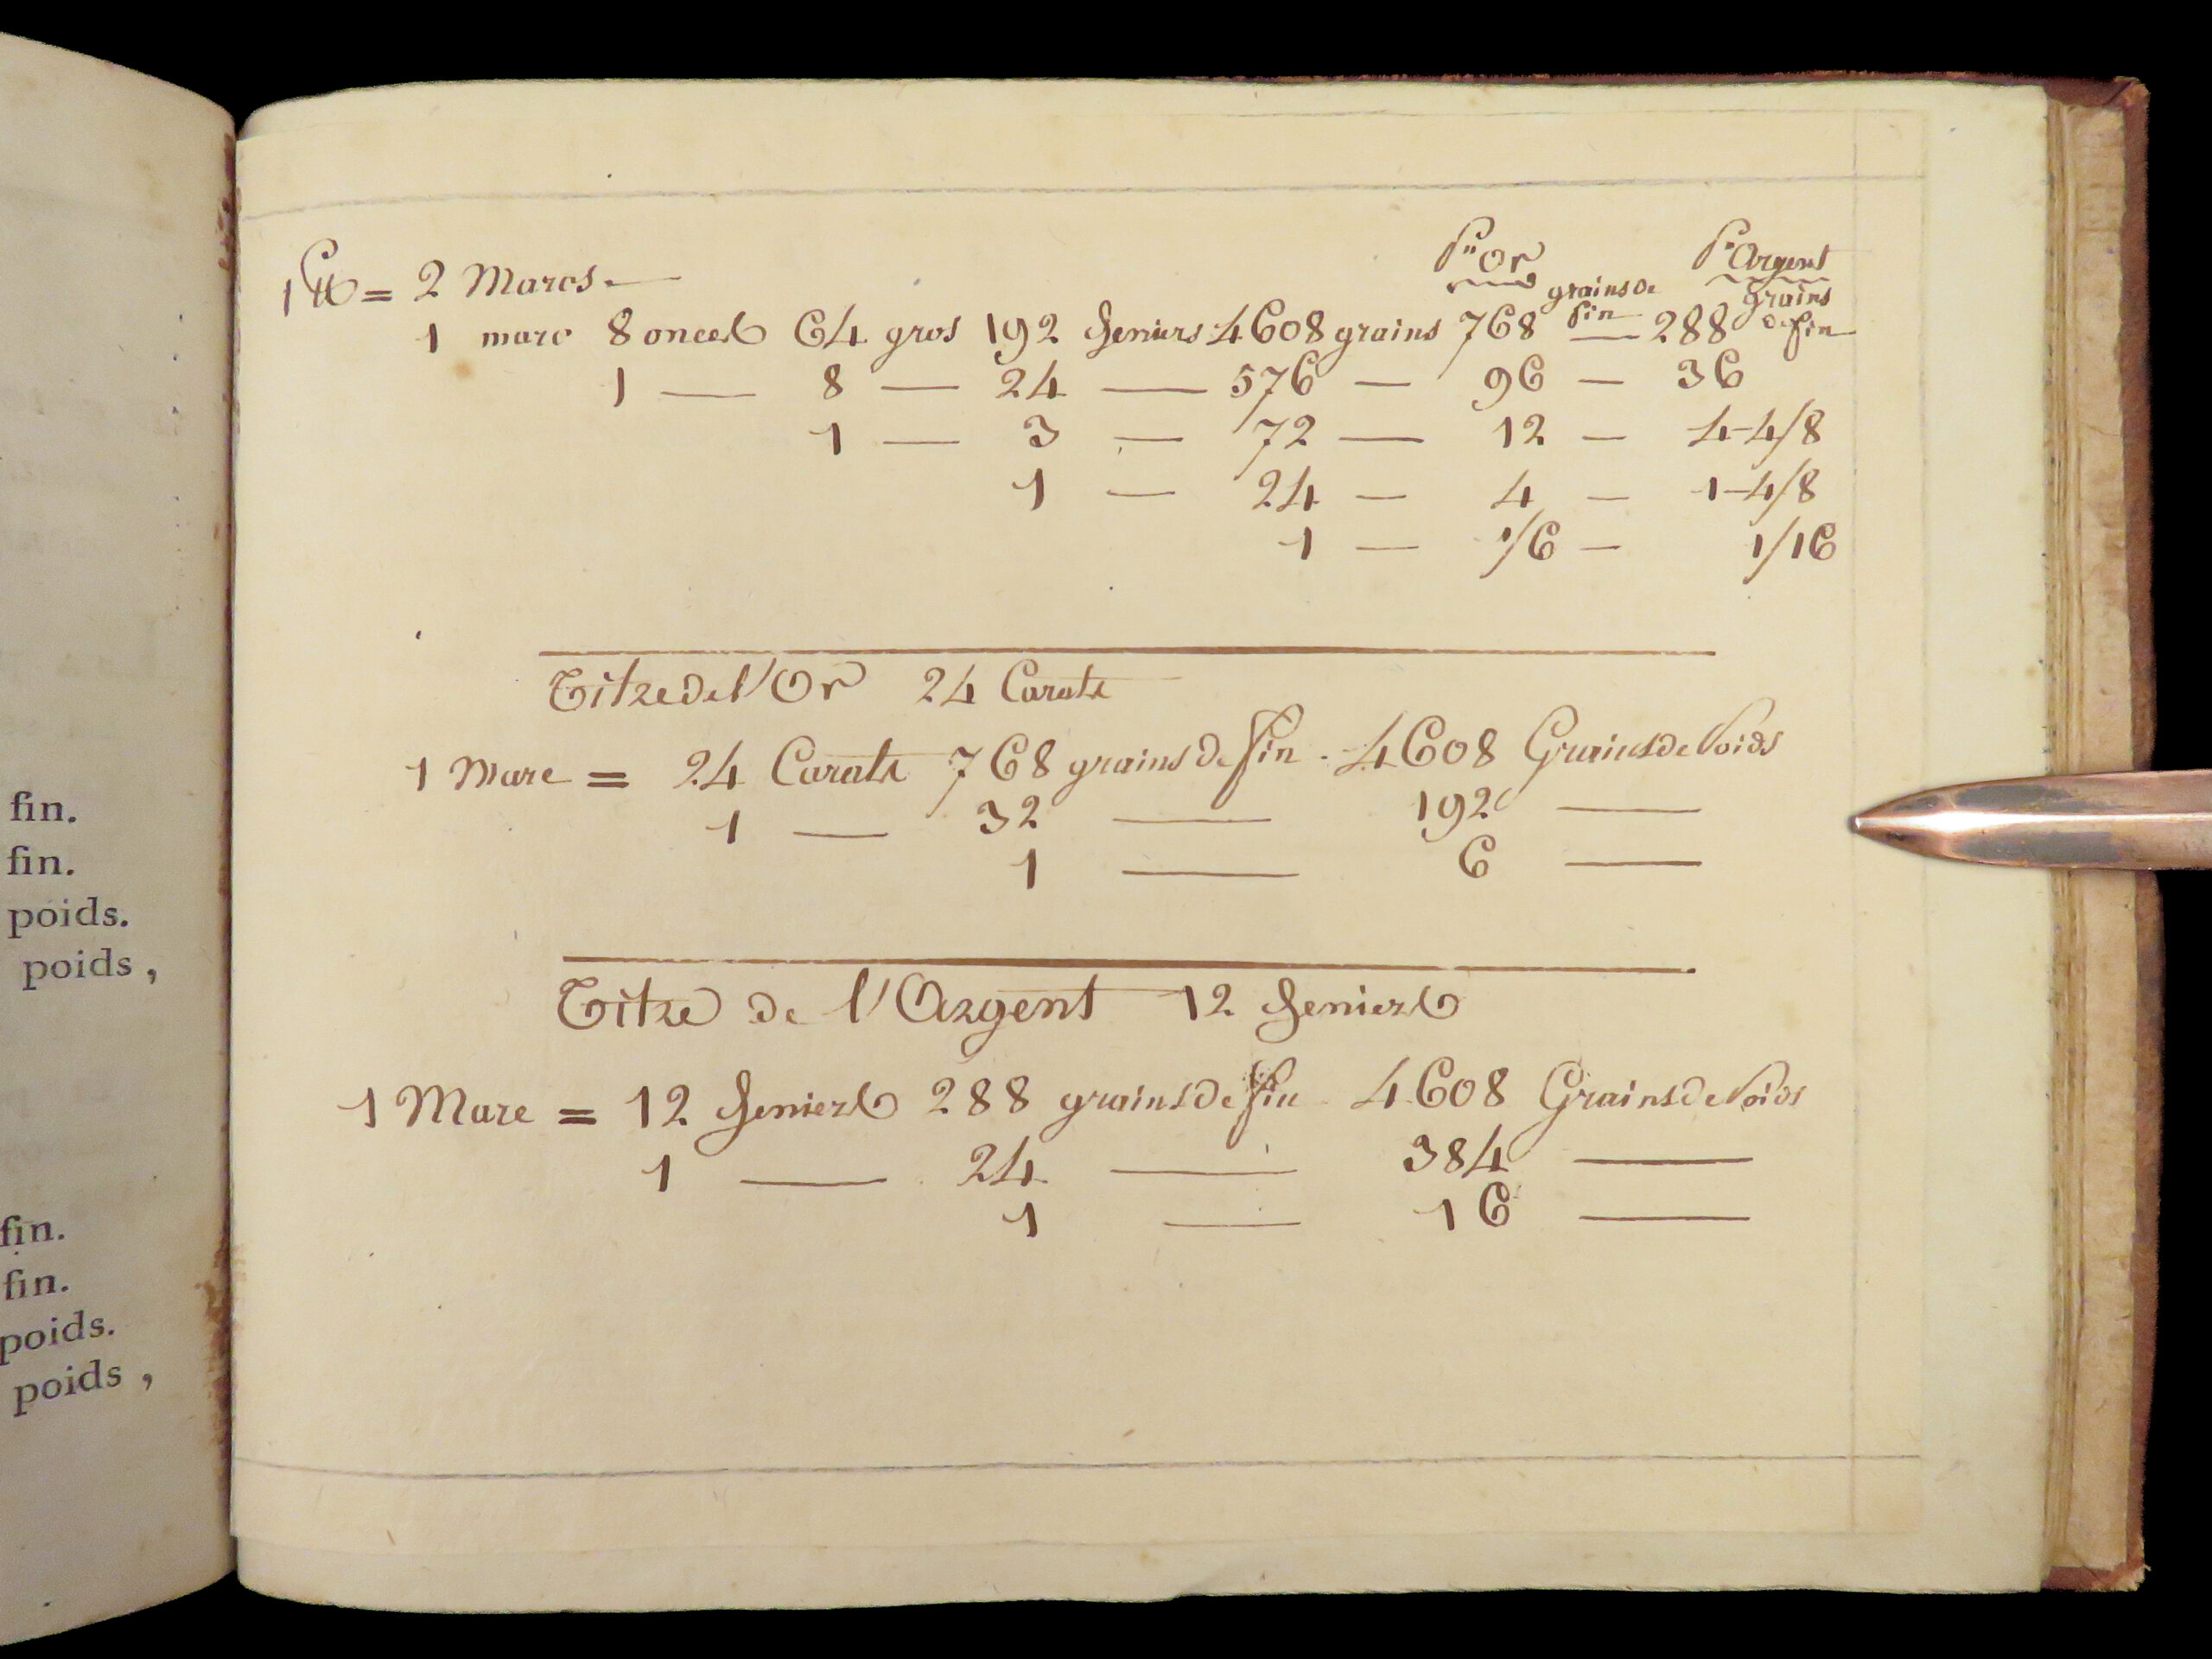 fin.
fin.
poids.
poids,
fin.
fin.
poids.
poids,
Pr Or Pr Argent
1 ℔ = 2 Marcs.
grains de fin grains de fin
1 marc 8 onces 64 gros 192 deniers 4608 grains 768 — 288
1 — 8 — 24 — 576 — 96 — 36
1 — 3 — 72 — 12 — 4-4/8
1 — 24 — 4 — 1-4/8
1 — 1/6 — 1/16
Titre de l'Or 24 Carats
1 Marc = 24 Carats 768 grains de fin. 4608 Grains de Poids
1 — 32 — 192 —
1 — 6 —
Titre de l'Argent 12 deniers
1 Marc = 12 deniers 288 grains de fin 4608 Grains de Poids
1 — 24 — 384 —
1 — 16 —